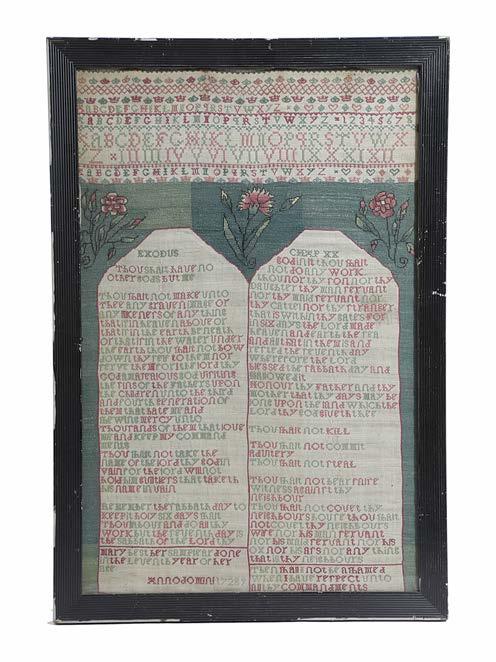 ABCDEFGHIKLMNOPQRSTVWXYZ
ABCDEFGHIKLMNOPQRSTVWXYZ 1234567
ABCDEFGHIKLMNOPQRSTVWX
ABCDEFGHIKLMNOPQRSTVWXYZ
EXODUS
Thou shalt have no
other gods but me
Thou shalt not make unto
thee any graven image or
any likeness of any thing
that is in heaven above or
that is in the earth beneath
or that is in the water under
the earth thou shalt not bow
down thy self to them nor
serve them for I the lord thy
god am a jealous god visiting
the sins of the fathers upon
the children unto the third
and fourth generation of
them that hate me and
shewing mercy unto
thousands of them that love
me and keep my command
ments
Thou shalt not take the
name of the lord thy god in
vain for the lord will not
hold him guiltless that taketh
his name in vain
Remember the sabbath day to
keep it holy six days shalt
thou labour and do all thy
work but the seventh day is
the sabbath of the lord thy
Mary best her sampler done
in the eleventh year of her
age
ANNO DOMINI
CHAP XX
god in it thou shalt
not do any work
thou nor thy son nor thy
daughter thy man servant
nor thy maid servant nor
thy cattel nor thy stranger
that is within thy gates for
in six days the lord made
heaven and earth the sea
and all that in them is and
rested the seventh day
wherefore the lord
blessed the sabbath day and
hallowed it
Honour thy father and thy
mother that thy days may be
long upon the land which the
lord thy god giveth thee
Thou shalt not kill
Thou shalt not commit
adultery
Thou shalt not steal
Thou shalt not bear false
witness against thy
neighbour
Thou shalt not covet thy
neighbours house thou shalt
not covet thy neighbours
wife nor his man servant
nor his maid servant nor his
ox nor his ass nor any thing
that is thy neighbours
Then shall I not be ashamed
when I have respect unto
all thy commandments